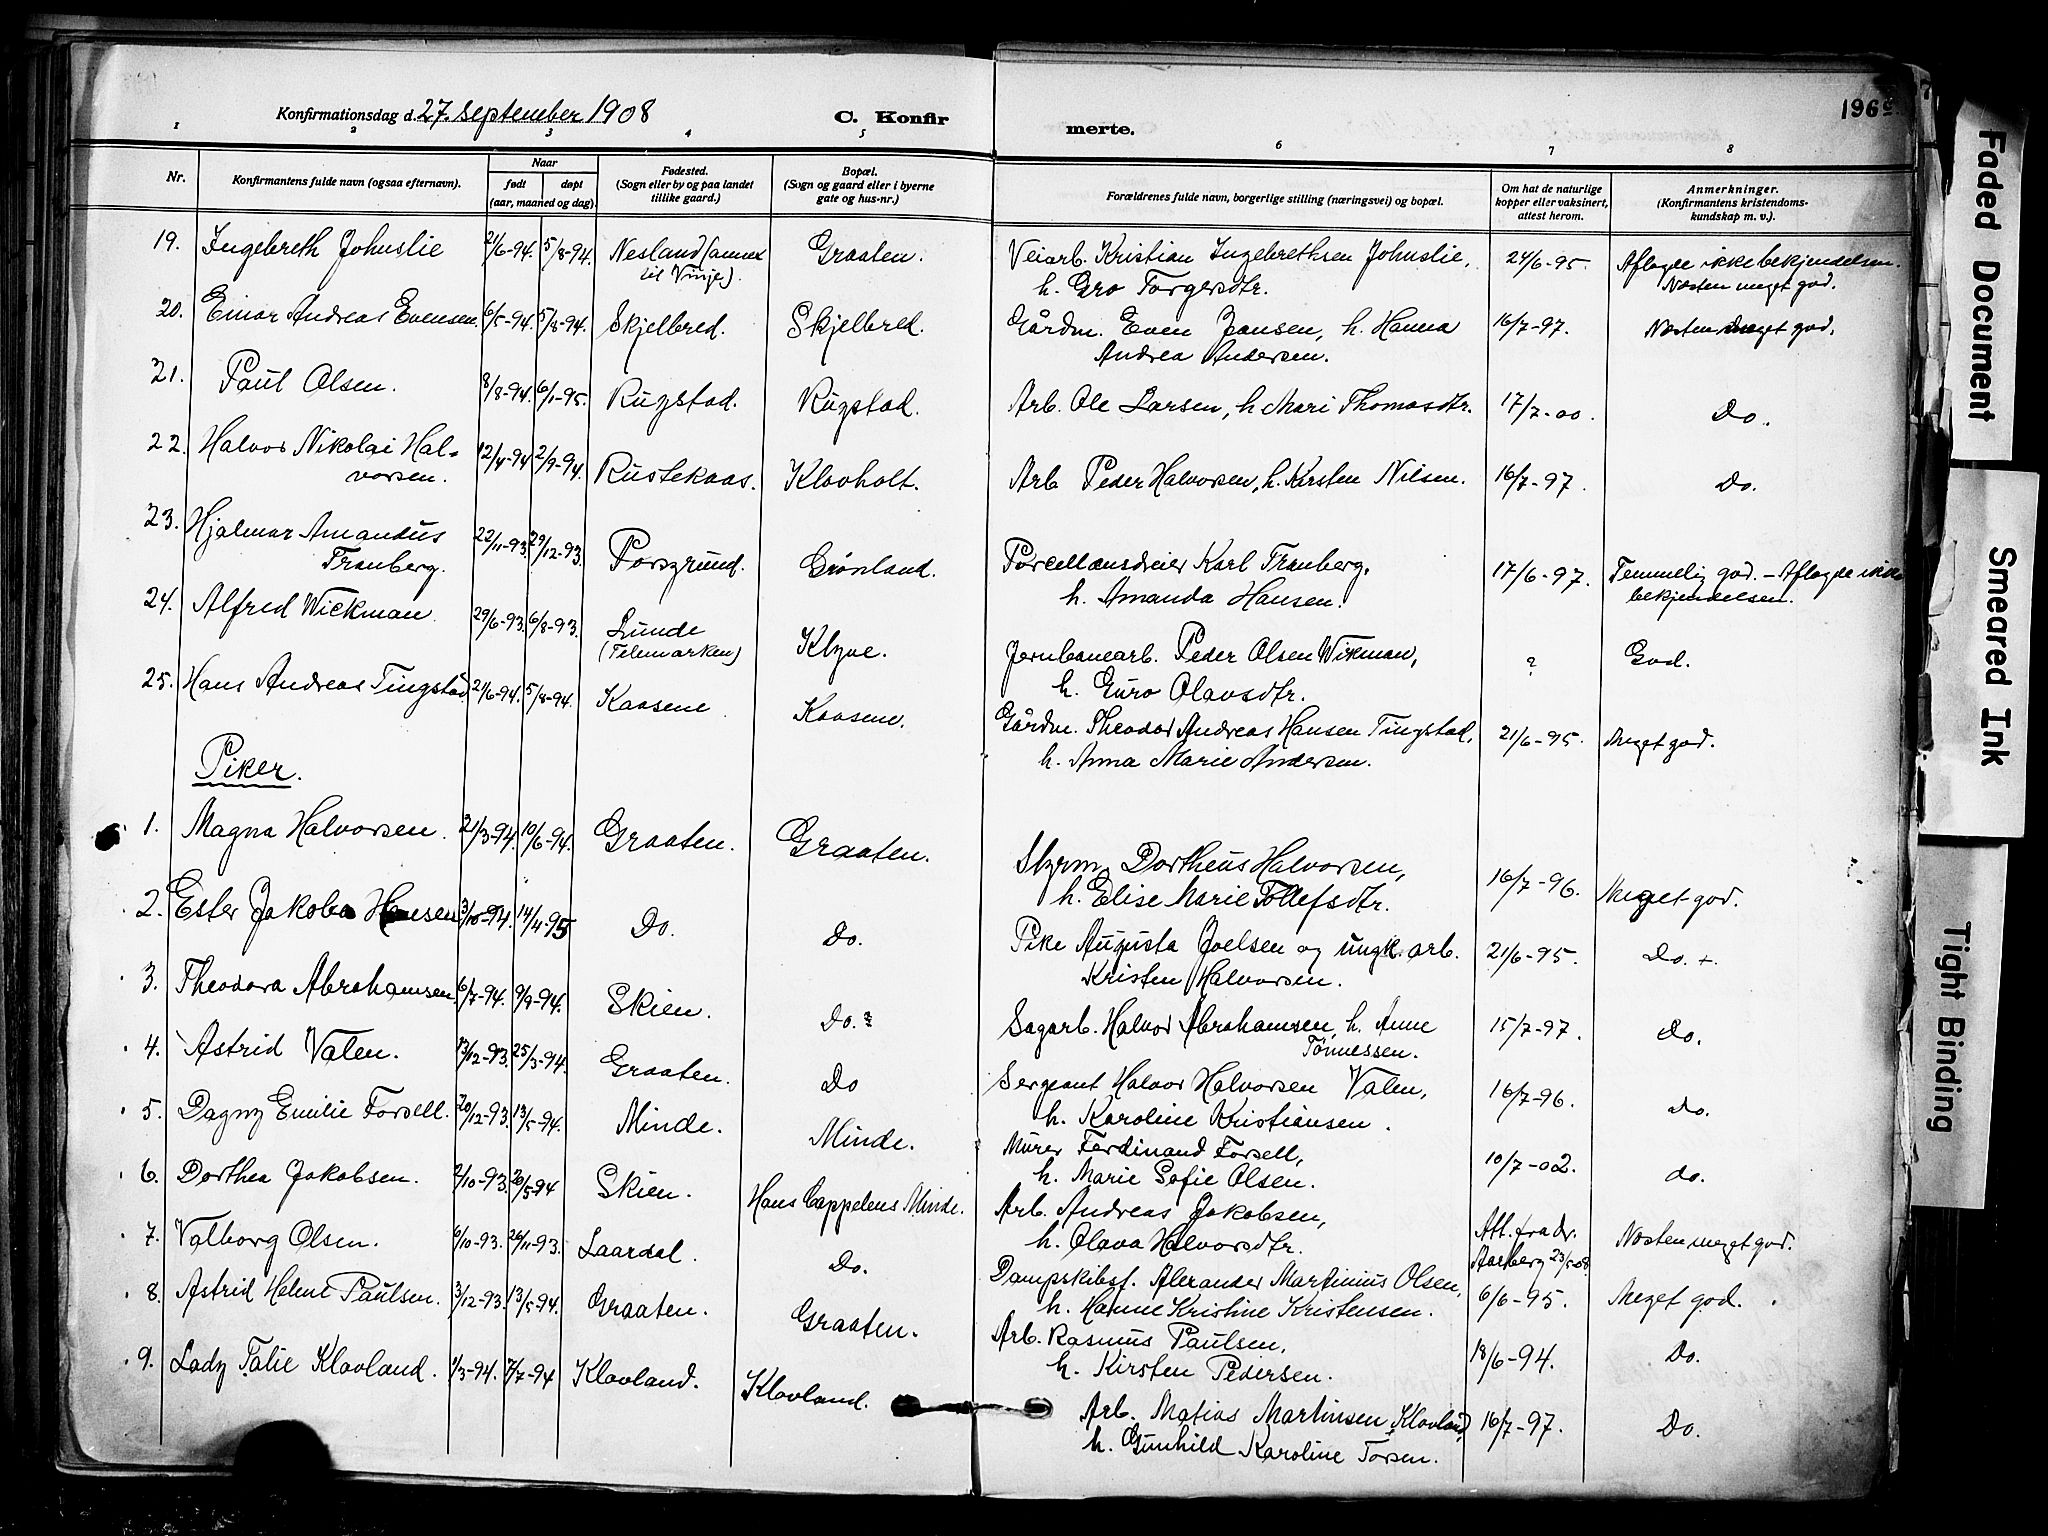 Konfirmationsdag d. 27. september 1908
C. Konfir
merte.
196
1 2 3 4 5 6 7 8
Nr.
Konfirmantens fulde navn (ogsaa efternavn).
Naar
født
døpt
(aar, maaned og dag).
Fødested.
(Sogn eller by og paa landet
tillike gaard.)
Bopæl.
(Sogn og gaard eller i byerne
gate og hus-nr.)
Forældrenes fulde navn, borgerlige stilling (næringsvei) og bopæl.
Om hat de naturlige
kopper eller vaksinert,
attest herom.
Anmerkninger.
(Konfirmantens kristendoms-
kundskap m. v.).
19. Ingebreth Johnslie 2/6-94. 5/8-94. Nesland (annex Graaten. Veiarb. Kristian Ingebrethsen Johnslie, 24/6-95. Aflagde ikke bekjendelsen.
til Vinje). h. Gro Torgersdtr. Næsten meget god.
20. Einar Andreas Evensen 6/5-94. 5/8-94. Skjelbred. Skjelbred. Gårdm. Even Jansen, h. Hanna 16/7-97. Næsten meget god.
Andrea Andersen.
21. Paul Olsen. 8/8-94. 6/1-95. Rugstad. Rugstad. Arb. Ole Larsen, h Mari Thomasdtr. 17/7-00. Do.
22. Halvor Nikolai Hal-
vorsen. 12/4-94 2/9-94. Rustekaas. Klovholt. Arb Peder Halvorsen, h. Karsten Nilsen. 16/7-97. Do.
23. Hjalmar Amandus
Tranberg. 22/11-93. 29/12-93. Porsgrund. Grønland. Porcellansdreier Karl Tranberg, 17/6-97. Temmelig god. - Aflagde ikke
h. Amanda Hansen. bekjendelsen.
24. Alfred Wickman. 29/6-93. 6/8-93. Lunde Klyve. Jernbanearb. Peder Olsen Wikman, ? God.
(Telemarken) h. Guro Olavsdtr.
25. Hans Andreas Tingstad 2/6-94. 5/8-94. Kaasene Kaasene. Gårdm. Theodor Andreas Hansen Tingstad, 21/6-95. Meget god.
h. Anna Marie Andersen.
Piker.
1. Magna Halvorsen. 21/3-94. 10/6-94. Graaten. Graaten. Styrm. Dortheus Halvorsen, 16/7-96. Meget god.
h. Elise Marie Tollefsdtr.
2. Ester Jakoba Hansen 3/10-94. 14/4-95 Do. Do. Pike Augusta Joelsen og ungk. arb. 21/6-95. Do. +.
Kristen Halvorsen.
3. Theodora Abrahamsen. 6/7-94. 9/9-94. Skien. Do. Sagarb. Halvor Abrahamsen, h. Anne 15/7-97. Do.
Tønnessen.
4. Astrid Valen. 13/12-93. 25/3-94. Graaten. Do Sergeant Halvor Halvorsen Valen, 16/7-96. Do.
h. Karoline Kristiansen.
5. Dagny Emilie Forsell. 20/12-93. 13/5-94. Minde. Minde. Murer Ferdinand Forsell, 10/7-02. do.
h. Marie Sofie Olsen.
6. Dorthea Jakobsen. 2/10-93. 20/5-94 Skien. Hans Cappelens Minde. Arb. Andreas Jakobsen, Att. fra dr. Næsten meget god.
h. Olava Halvorsdtr. Aarberg 23/5-08.
7. Valborg Olsen. 6/10-93. 26/11-93. Laardal. Do. Dampskibsf. Alexander Martinius Olsen, 6/6-95. Meget god.
h. Hanne Kristine Kristensen.
8. Astrid Helene Paulsen. 3/12-93. 13/5-94. Graaten. Graaten. Arb. Rasmus Paulsen, 18/6-94. Do.
h. Kirsten Pedersen.
9. Lady Talie Klovland. 1/3-94. 7/7-94 Klovland. Klovland. Arb. Matias Martinsen Klovland, 16/7-97. Do.
h. Gunhild Karoline Torsen.
Faded Document
Smeared Ink
Tight Binding